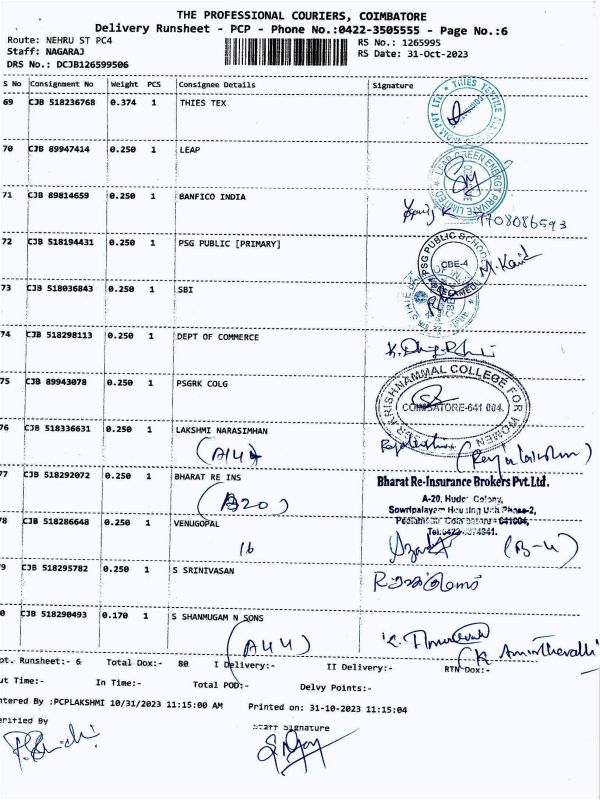 THE PROFESSIONAL COURIERS, COIMBATORE
Delivery Runsheet - PCP - Phone No.:0422-3505555 - Page No.:6
Route: NEHRU ST PC4
RS No.: 1265995
Staff: NAGARAJ
RS Date: 31-Oct-2023
DRS No.: DCJB126599506
S No Consignment No Weight PCS Consignee Details Signature
69 CJB 518236768 0.374 1 THIES TEX
70 CJB 89947414 0.250 1 LEAP
71 CJB 89814659 0.250 1 BANFICO INDIA
72 CJB 518194431 0.250 1 PSG PUBLIC [PRIMARY]
PSG PUBLIC SCHOOL
CBE-4
73 CJB 518036843 0.250 1 SBI
74 CJB 518298113 0.250 1 DEPT OF COMMERCE
75 CJB 89943078 0.250 1 PSGRK COLG
KRISHNAMMAL COLLEGE FOR WOMEN
COIMBATORE-641 004.
76 CJB 518336631 0.250 1 LAKSHMI NARASIMHAN
77 CJB 518292072 0.250 1 BHARAT RE INS
(A20)
Bharat Re-Insurance Brokers Pvt.Ltd.
A-20, Hudco Colony,
Sowripalayam Housing Unit Phase-2,
78 CJB 518286648 0.250 1 VENUGOPAL
16
79 CJB 518295782 0.250 1 S SRINIVASAN
0 CJB 518290493 0.170 1 S SHANMUGAM N SONS
(A44)
ot. Runsheet:- 6 Total Dox:- 80 I Delivery:- II Delivery:- RTN Dox:-
ut Time:- In Time:- Total POD:- Delvy Points:-
ntered By :PCPLAKSHMI 10/31/2023 11:15:00 AM Printed on: 31-10-2023 11:15:04
erified By
Staff Signature